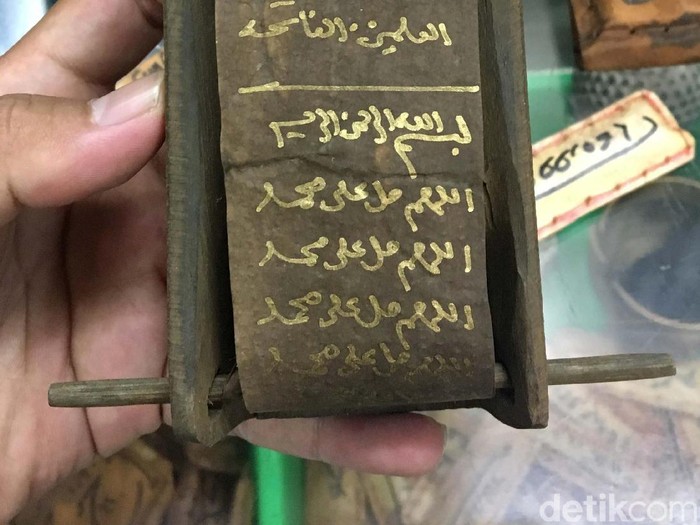 العلمين الفاتحه
بسم الله الرحمن الرحيم
اللهم صل على محمد
اللهم صل على محمد
اللهم صل على محمد
اللهم صل على محمد
detikcom